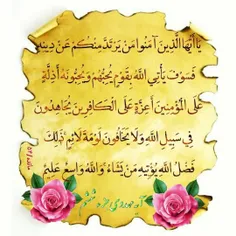 يَا أَيُّهَا الَّذِينَ آمَنُوا مَنْ يَرْتَدَّ مِنْكُمْ عَنْ دِينِهِ
فَسَوْفَ يَأْتِي اللَّهُ بِقَوْمٍ يُحِبُّهُمْ وَيُحِبُّونَهُ أَذِلَّةٍ
عَلَى الْمُؤْمِنِينَ أَعِزَّةٍ عَلَى الْكَافِرِينَ يُجَاهِدُونَ
فِي سَبِيلِ اللَّهِ وَلَا يَخَافُونَ لَوْمَةَ لَائِمٍ ذَلِكَ
فَضْلُ اللَّهِ يُؤْتِيهِ مَنْ يَشَاءُ وَاللَّهُ وَاسِعٌ عَلِيمٌ